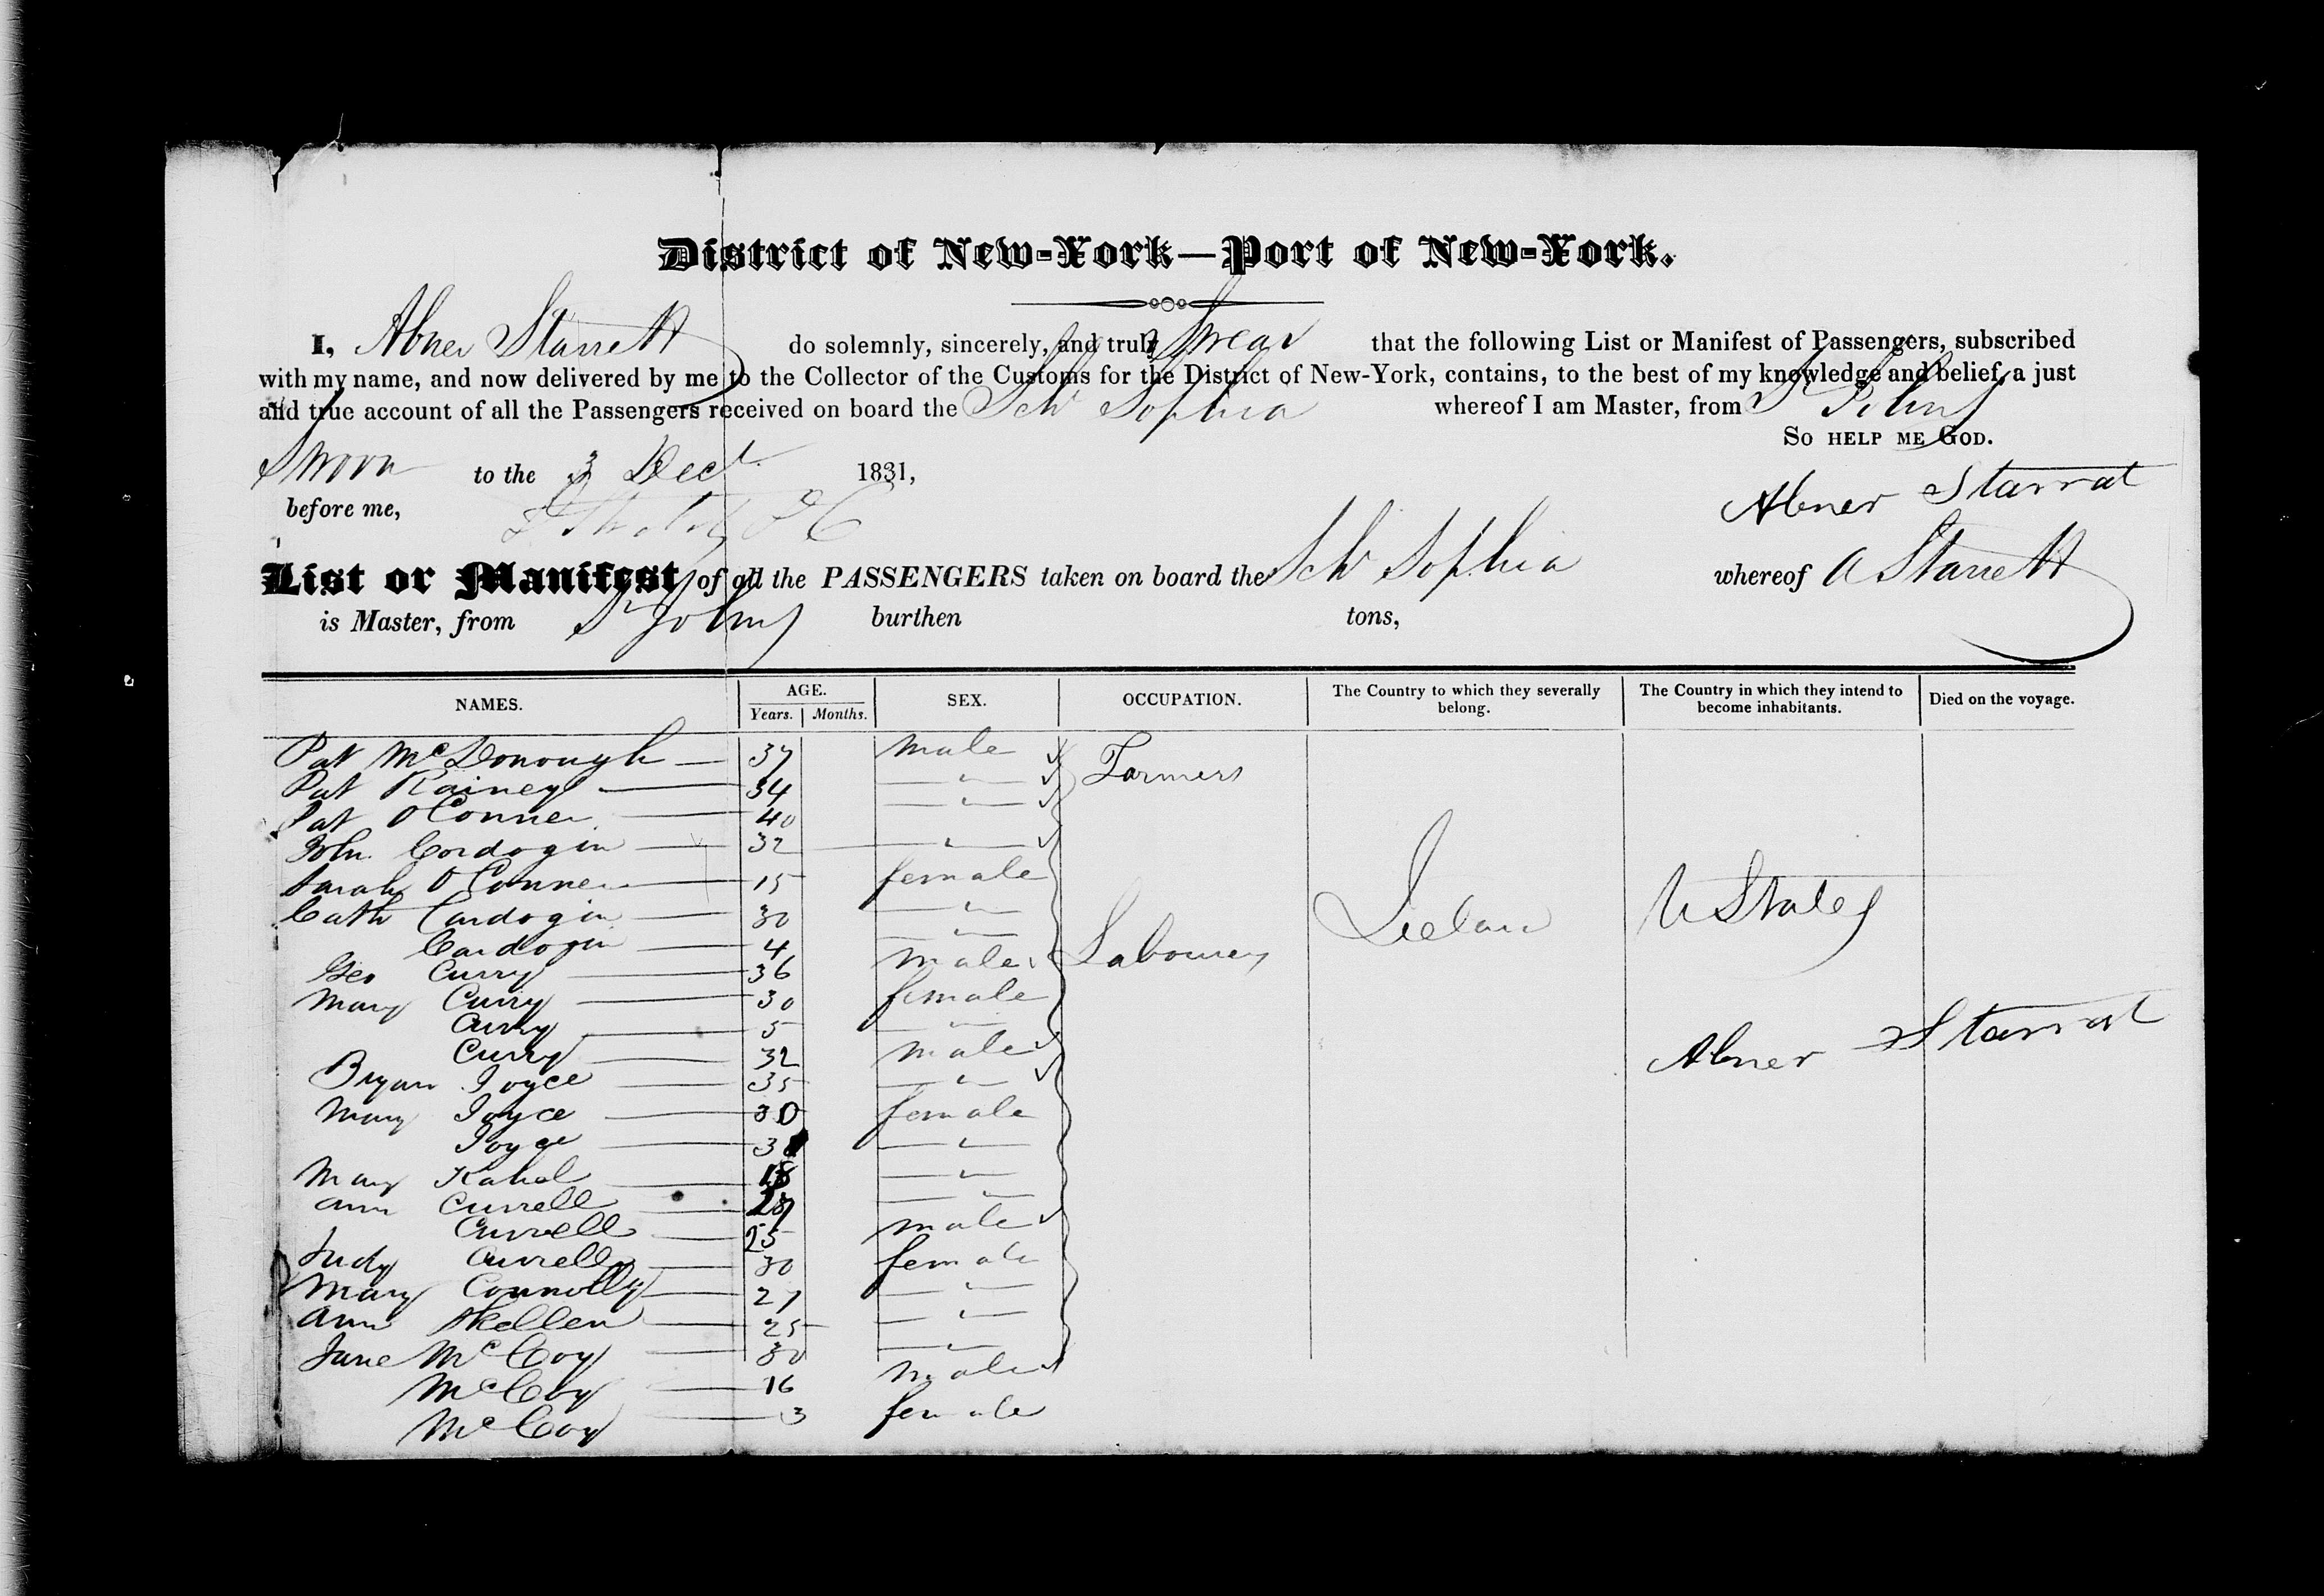 District of New-York—Port of New-York.
I, Abner Starrett do solemnly, sincerely, and truly Swear that the following List or Manifest of Passengers, subscribed
with my name, and now delivered by me to the Collector of the Customs for the District of New-York, contains, to the best of my knowledge and belief, a just
and true account of all the Passengers received on board the Schr Sophia whereof I am Master, from St Johns
So help me God.
Sworn to the 3 Dect 1831,
Abner Starrat
before me,
List or Manifest of all the PASSENGERS taken on board the Schr Sophia whereof A Starrett
is Master, from St Johns burthen tons,
NAMES. AGE. Years. Months. SEX. OCCUPATION. The Country to which they severally belong. The Country in which they intend to become inhabitants. Died on the voyage.
Pat McDonough — 37 male Farmers
Pat Rainey — 34 — " —
Pat OConner — 40 — " —
John Cordogin — 32 — " —
Sarah OConner — 15 female
Cath Cardogin — 30 — " —
Cardogin — 4 — " —
Geo Curry — 36 male Labourers Irelan U States
Mary Curry — 30 female
Curry — 5 — " —
Curry — 32 male
Bryan Joyce — 35 — " —
Abner Starrat
Mary Joyce — 30 female
Joyce — 3 — " —
Mary Kahel — 18 — " —
Ann Currell — — " —
Currell — 25 male
Judy Currell — 30 female
Mary Connolly — 27 — " —
Ann Skellen — 25 — " —
Jane McCoy — 30 — " —
McCoy — 16 male
McCoy — 3 female